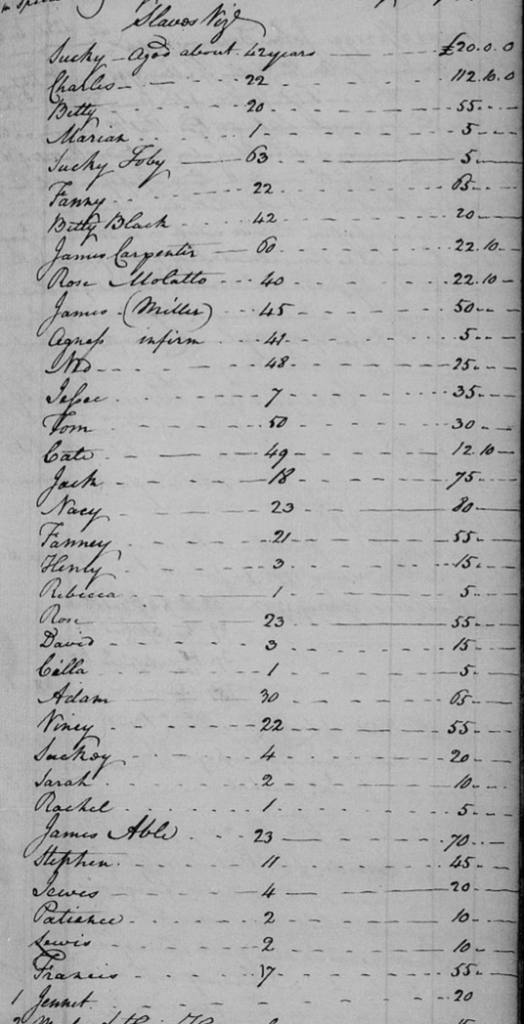 Slaves Viz.
Sucky - Aged about 42 years £20.0.0
Charles 22 112.10.0
Betty 20 55
Marian 1 5
Sucky Toby 63 5
Fanny 22 65
Betty Black 42 20
James Carpenter 60 22.10
Rose Molatto 40 22.10
James (Miller) 45 50
Agness infirm 41 5
Ned 48 25
Jesse 7 35
Tom 50 30
Cate 49 12.10
Jack 18 75
Nacy 23 80
Fanney 21 55
Henry 3 15
Rebecca 1 5
Rose 23 55
David 3 15
Cilla 1 5
Adam 30 65
Viney 22 55
Suckey 4 20
Sarah 2 10
Rachel 1 5
James Able 23 70
Stephen 11 45
4 20
Patience 2 10
Lewis 2 10
Francis 17 55
1 Jennet 20